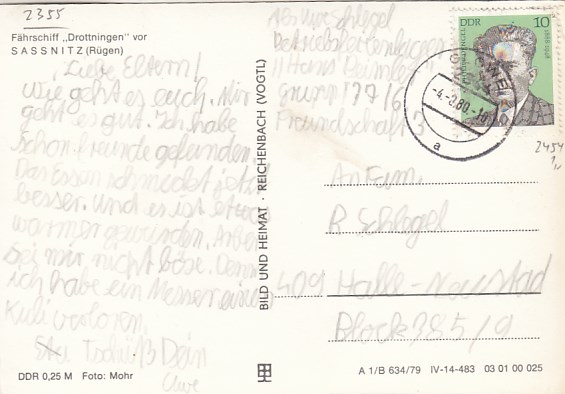 2355
Fährschiff „Drottningen" vor
SASSNITZ (Rügen)
Liebe Eltern!
Wie geht es euch. Mir
geht es gut. Ich habe
schon freunde gefunden.
Das Essen schmeckt jetzt
besser. und es ist etwas
warmer geworden. Aber
sei mir nicht böse. Denn
ich habe ein Messer einen
Kuli verloren.
Tschüß Dein
Uwe
DDR 0,25 M Foto: Mohr
BILD UND HEIMAT · REICHENBACH (VOGTL)
Uwe Schlegel
Betriebsferienlager
"Hans Beimler"
Freundschaft 3
DDR 10
-4.-8.80.-10
a
2454
An Fam.
R Schlegel
409 Halle-Neustad
Block 385/9
A 1/B 634/79 IV-14-483 03 01 00 025